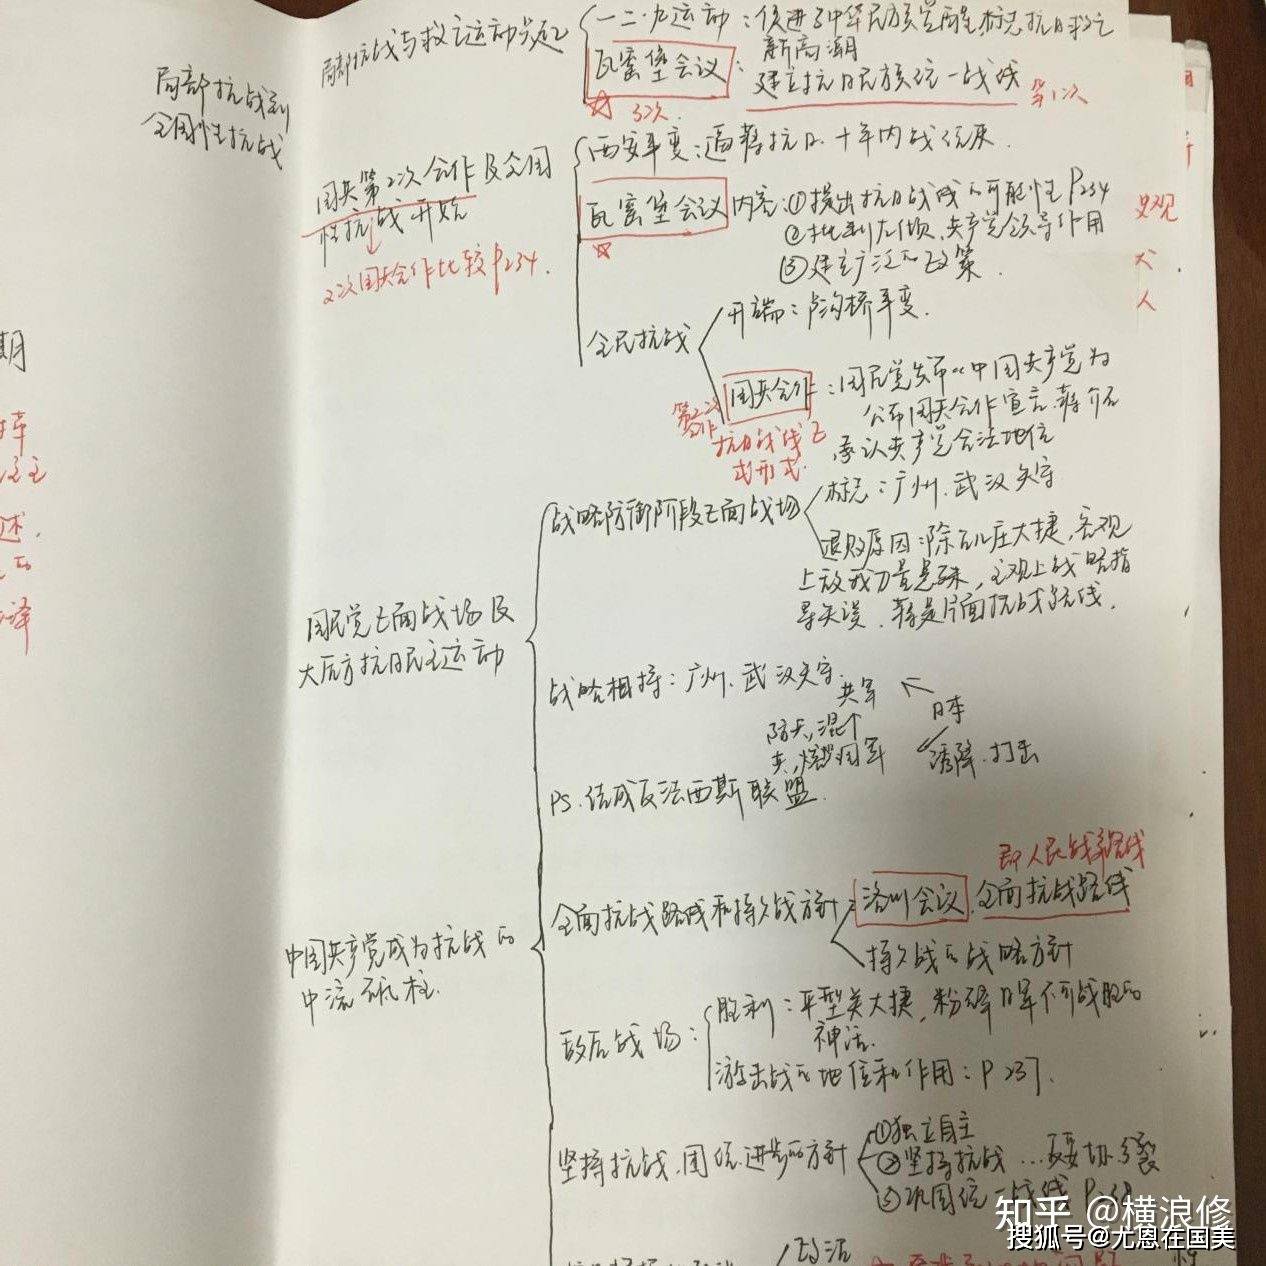 局部抗战到
全国性抗战
局部抗战与救亡运动兴起
一二·九运动：促进了中华民族觉醒,标志抗日救亡
新高潮
瓦窑堡会议：建立抗日民族统一战线 第1次
3次
国共第2次合作及全国
性抗战开始
2次国共合作比较P234.
西安事变：逼蒋抗日.十年内战结束.
瓦窑堡会议 内容：①提出抗日战线的可能性P234
②批判左倾、共产党领导作用
③建立广泛的政策.
史观
人
全民抗战
开端：卢沟桥事变.
国共合作：国民党发布“中国共产党为
公布国共合作宣言.蒋介石
承认共产党合法地位
第二次
合作
抗日战线正
式形式.
期
国民党正面战场及
大后方抗日民主运动
战略防御阶段正面战场
标志：广州.武汉失守
退败原因:除台儿庄大捷,客观
上敌我力量悬殊,主观上战略指
导失误.蒋是片面抗战路线.
战略相持：广州.武汉失守.
共军
日本
防共,混个
诱降.打击
国军
PS.结成反法西斯联盟.
即人民战争路线
全面抗战路线和持久战方针
洛川会议.全面抗战路线
持久战的战略方针
中国共产党成为抗战的
中流砥柱.
敌后战场：
胜利：平型关大捷,粉碎日军不可战胜的
神话.
游击战的地位和作用：P237.
坚持抗战.团结.进步的方针
①独立自主
②坚持抗战
③巩固统一战线
政治
知乎 @横浪修
搜狐号@尤恩在国美